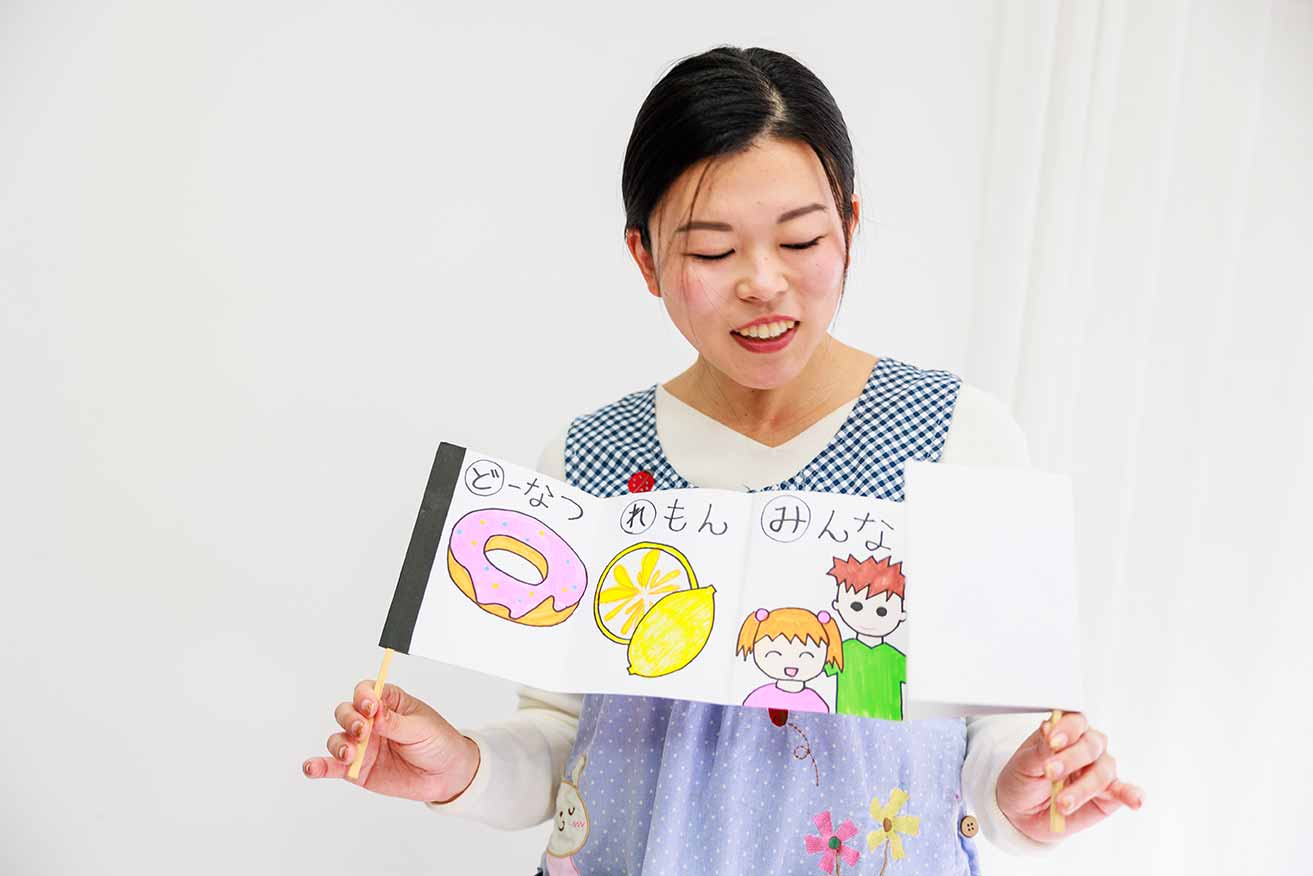 どーなつ
れもん
みんな